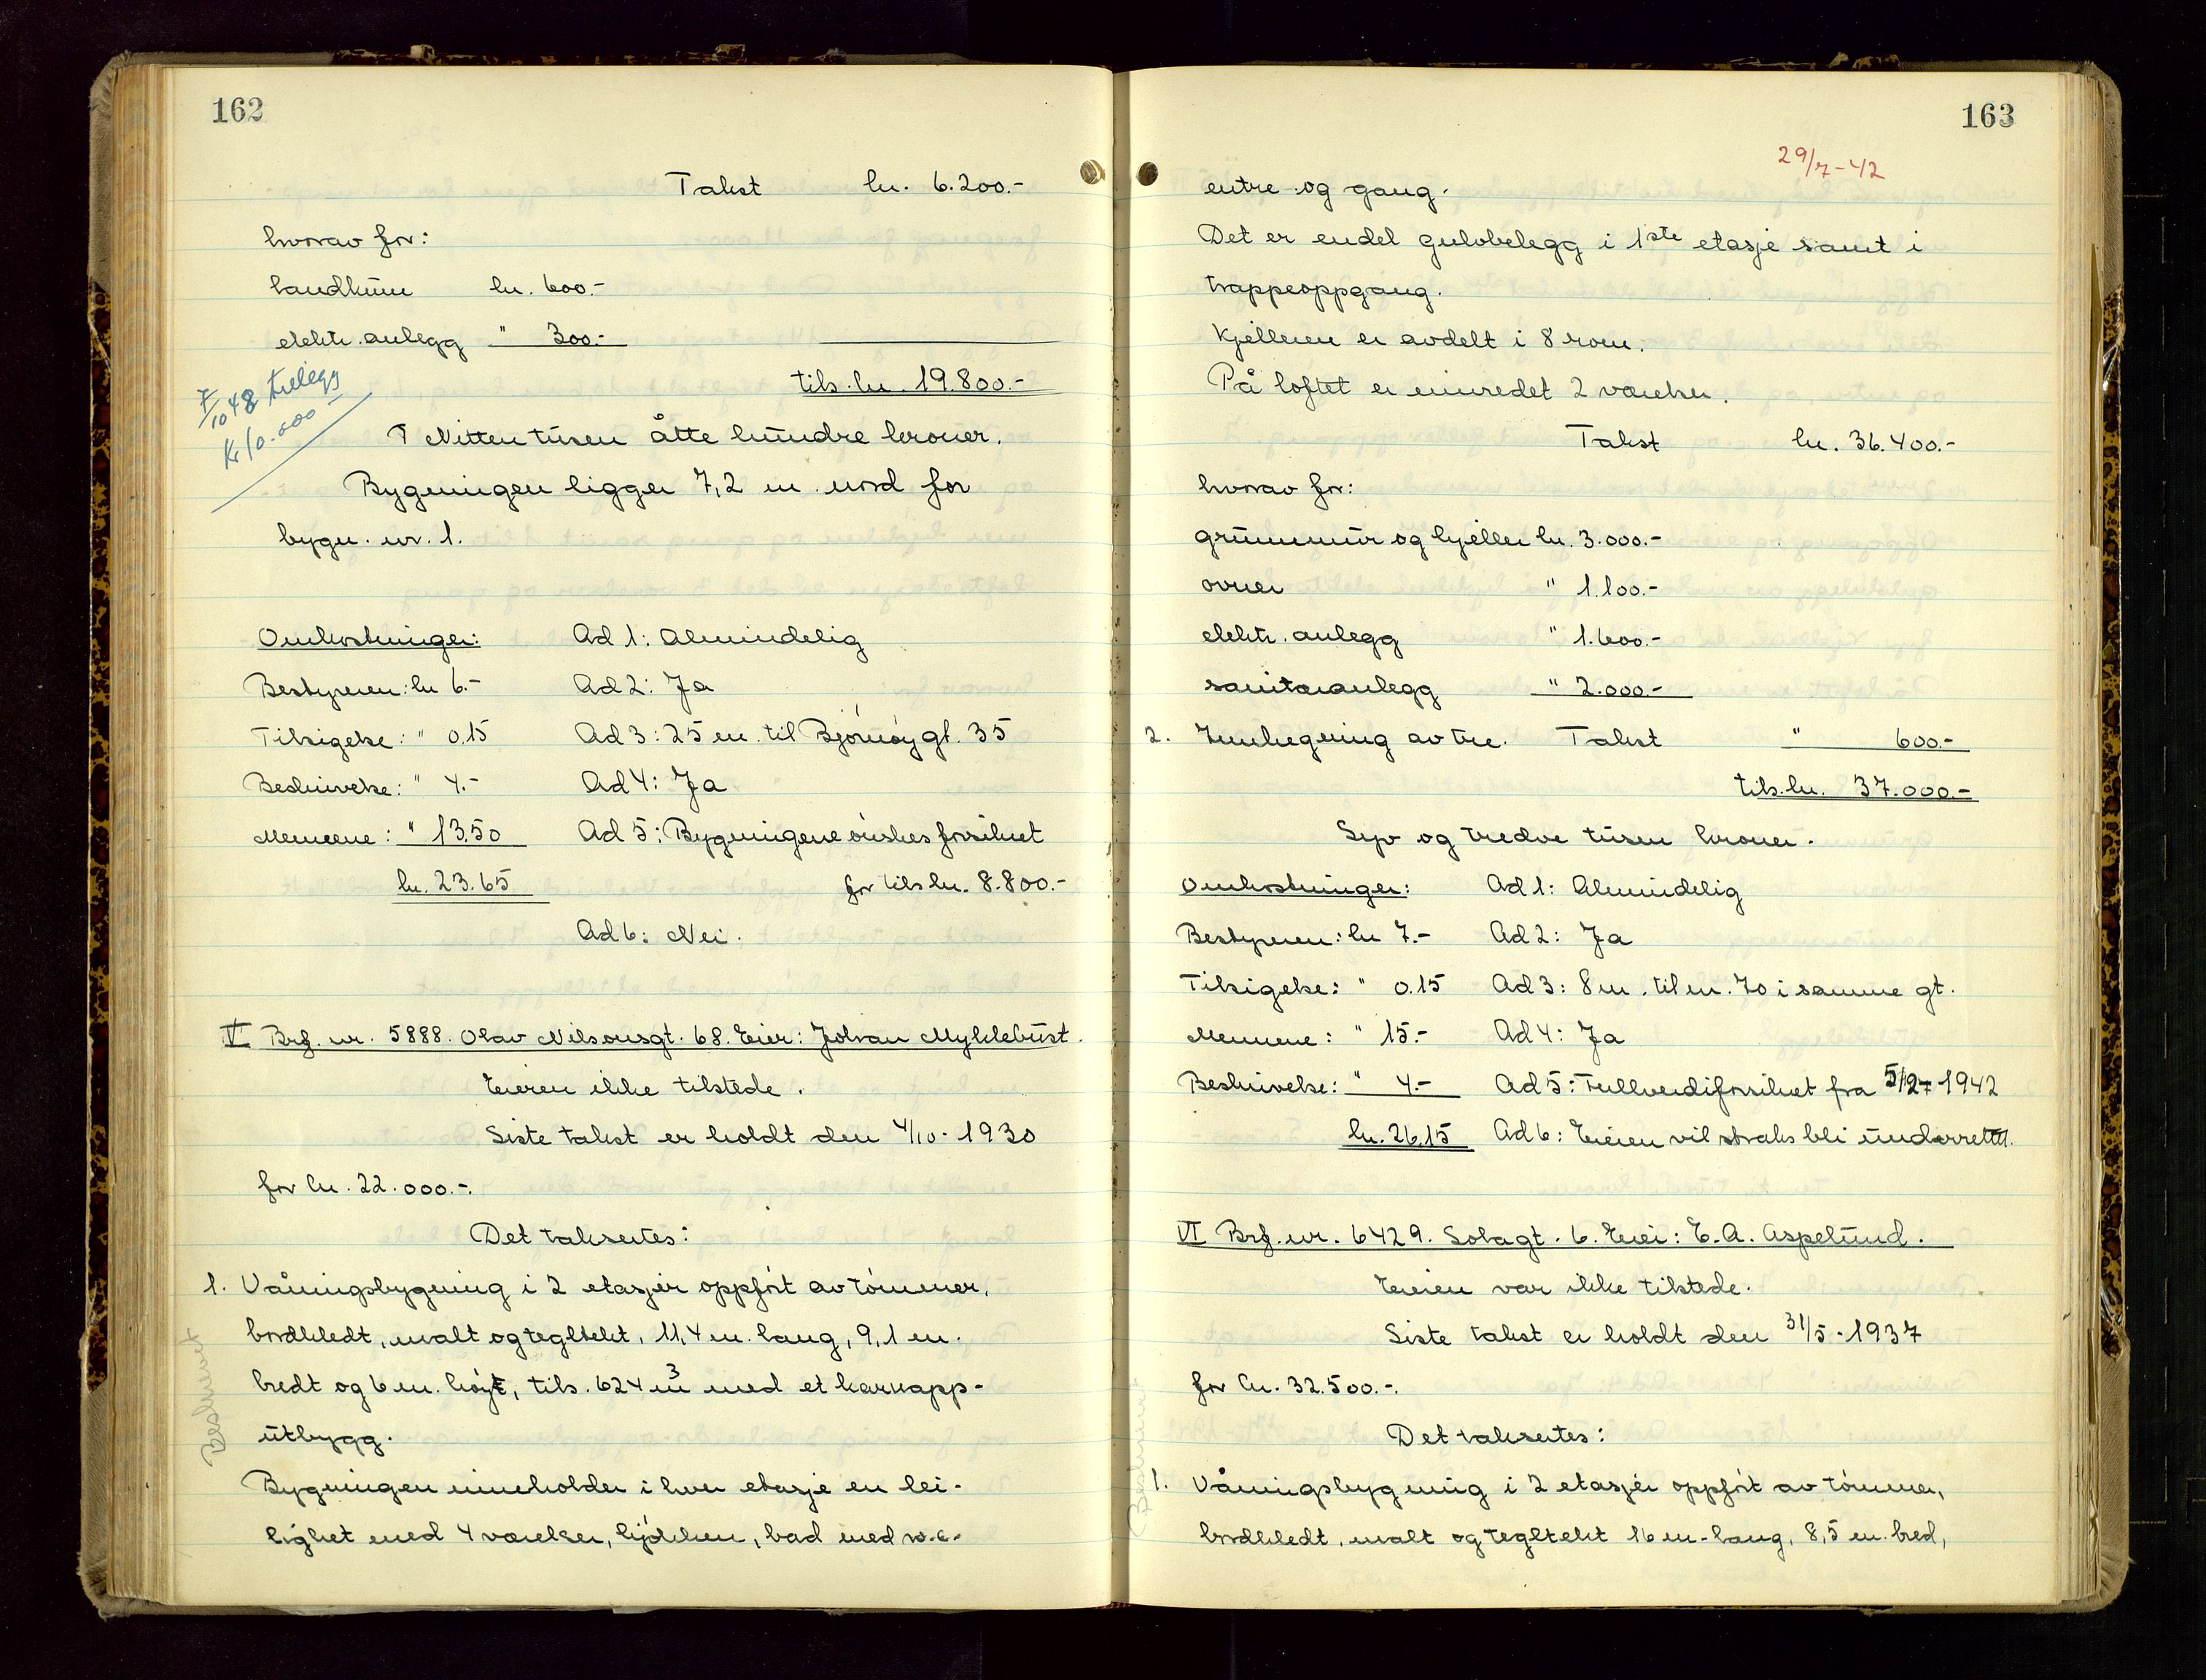 162
Takst kr. 6.200.-
hvorav for:
kr. 600.-
elektr. anlegg " 300.-
tils. kr. 19.800.-
7/10 48 tillegg
Kr 10.000 -
Nitten tusen åtte hundre kroner.
Bygningen ligger 7,2 m. nord for
bygn. nr. 1.
Omkostninger: Ad 1: Almindelig
Bestyreren: kr 6.- Ad 2: Ja
Tilsigelse: " 0.15 Ad 3: 25 m. til Bjørnøygt. 35
Beskrivelse: " 4.- Ad 4: Ja
Mennene: " 13.50 Ad 5: Bygningene ønskes forsikret
kr. 23.65 for tils kr. 8.800.-
Ad 6: Nei.
V Brf. nr. 5888. Olav Nilsonsgt. 68. Eier: Johan Myklebust.
Eieren ikke tilstede.
Siste takst er holdt den 4/10-1930
for kr. 22.000.-.
Det takseres:
1. Våningsbygning i 2 etasjer oppført av tømmer,
bordkledt, malt og tegltekt, 11,4 m. lang, 9,1 m.
bredt og 6 m. høyt, tils. 624 m³ med et karnapp-
utbygg.
Beskrevet
Bygningen inneholder i hver etasje en lei-
lighet med 4 værelser, kjøkken, bad med w.c.
163
29/7-42
entre og gang.
Det er endel gulvbelegg i 1ste etasje samt i
trappeoppgang.
Kjelleren er avdelt i 8 rom.
På loftet er innredet 2 værelser.
Takst kr. 36.400.-
hvorav for:
grunnmur og kjeller kr. 3.000.-
ovner " 1.100.-
elektr. anlegg " 1.600.-
sanitæranlegg " 2.000.-
2. Innhegning av tre. Takst " 600.-
tils. kr. 37.000.-
Syv og tredve tusen kroner.
Omkostninger: Ad 1: Almindelig
Bestyreren: kr 7.- Ad 2: Ja
Tilsigelse: " 0.15 Ad 3: 8 m. til nr. 70 i samme gt.
Mennene: " 15.- Ad 4: Ja
Beskrivelse: " 4.- Ad 5: Fullverdiforsikret fra 1942
kr. 26.15 Ad 6: Eieren vil straks bli underrettet.
VI Brf. nr. 6429. Solagt. 6. Eier: E. A. Aspelund.
Eieren var ikke tilstede.
Siste takst er holdt den 31/5-1937
for kr. 32.500.-.
Det takseres:
Beskrevet
1. Våningsbygning i 2 etasjer oppført av tømmer,
bordkledt, malt og tegltekt 16 m. lang, 8,5 m. bred,